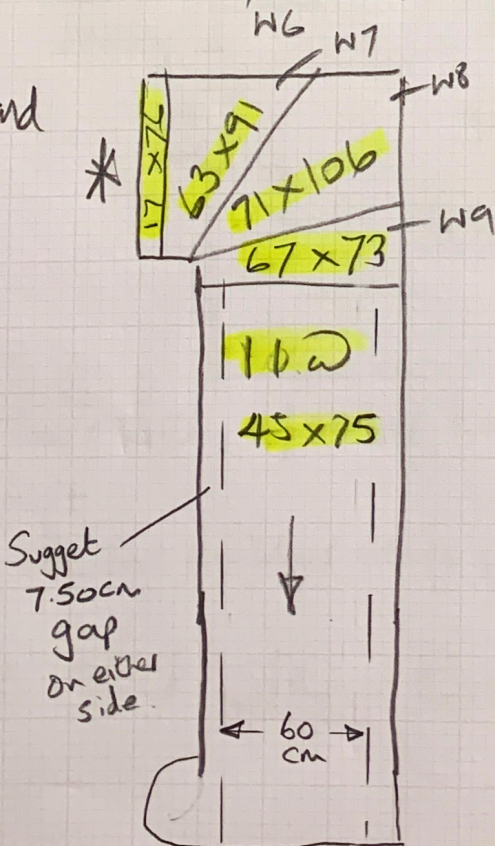 W6
W7
nd
W8
17 x 76
*
63 x 91
71 x 106
W9
67 x 73
45 x 75
Sugget
7.50cm
gap
on either
side.
60
cm